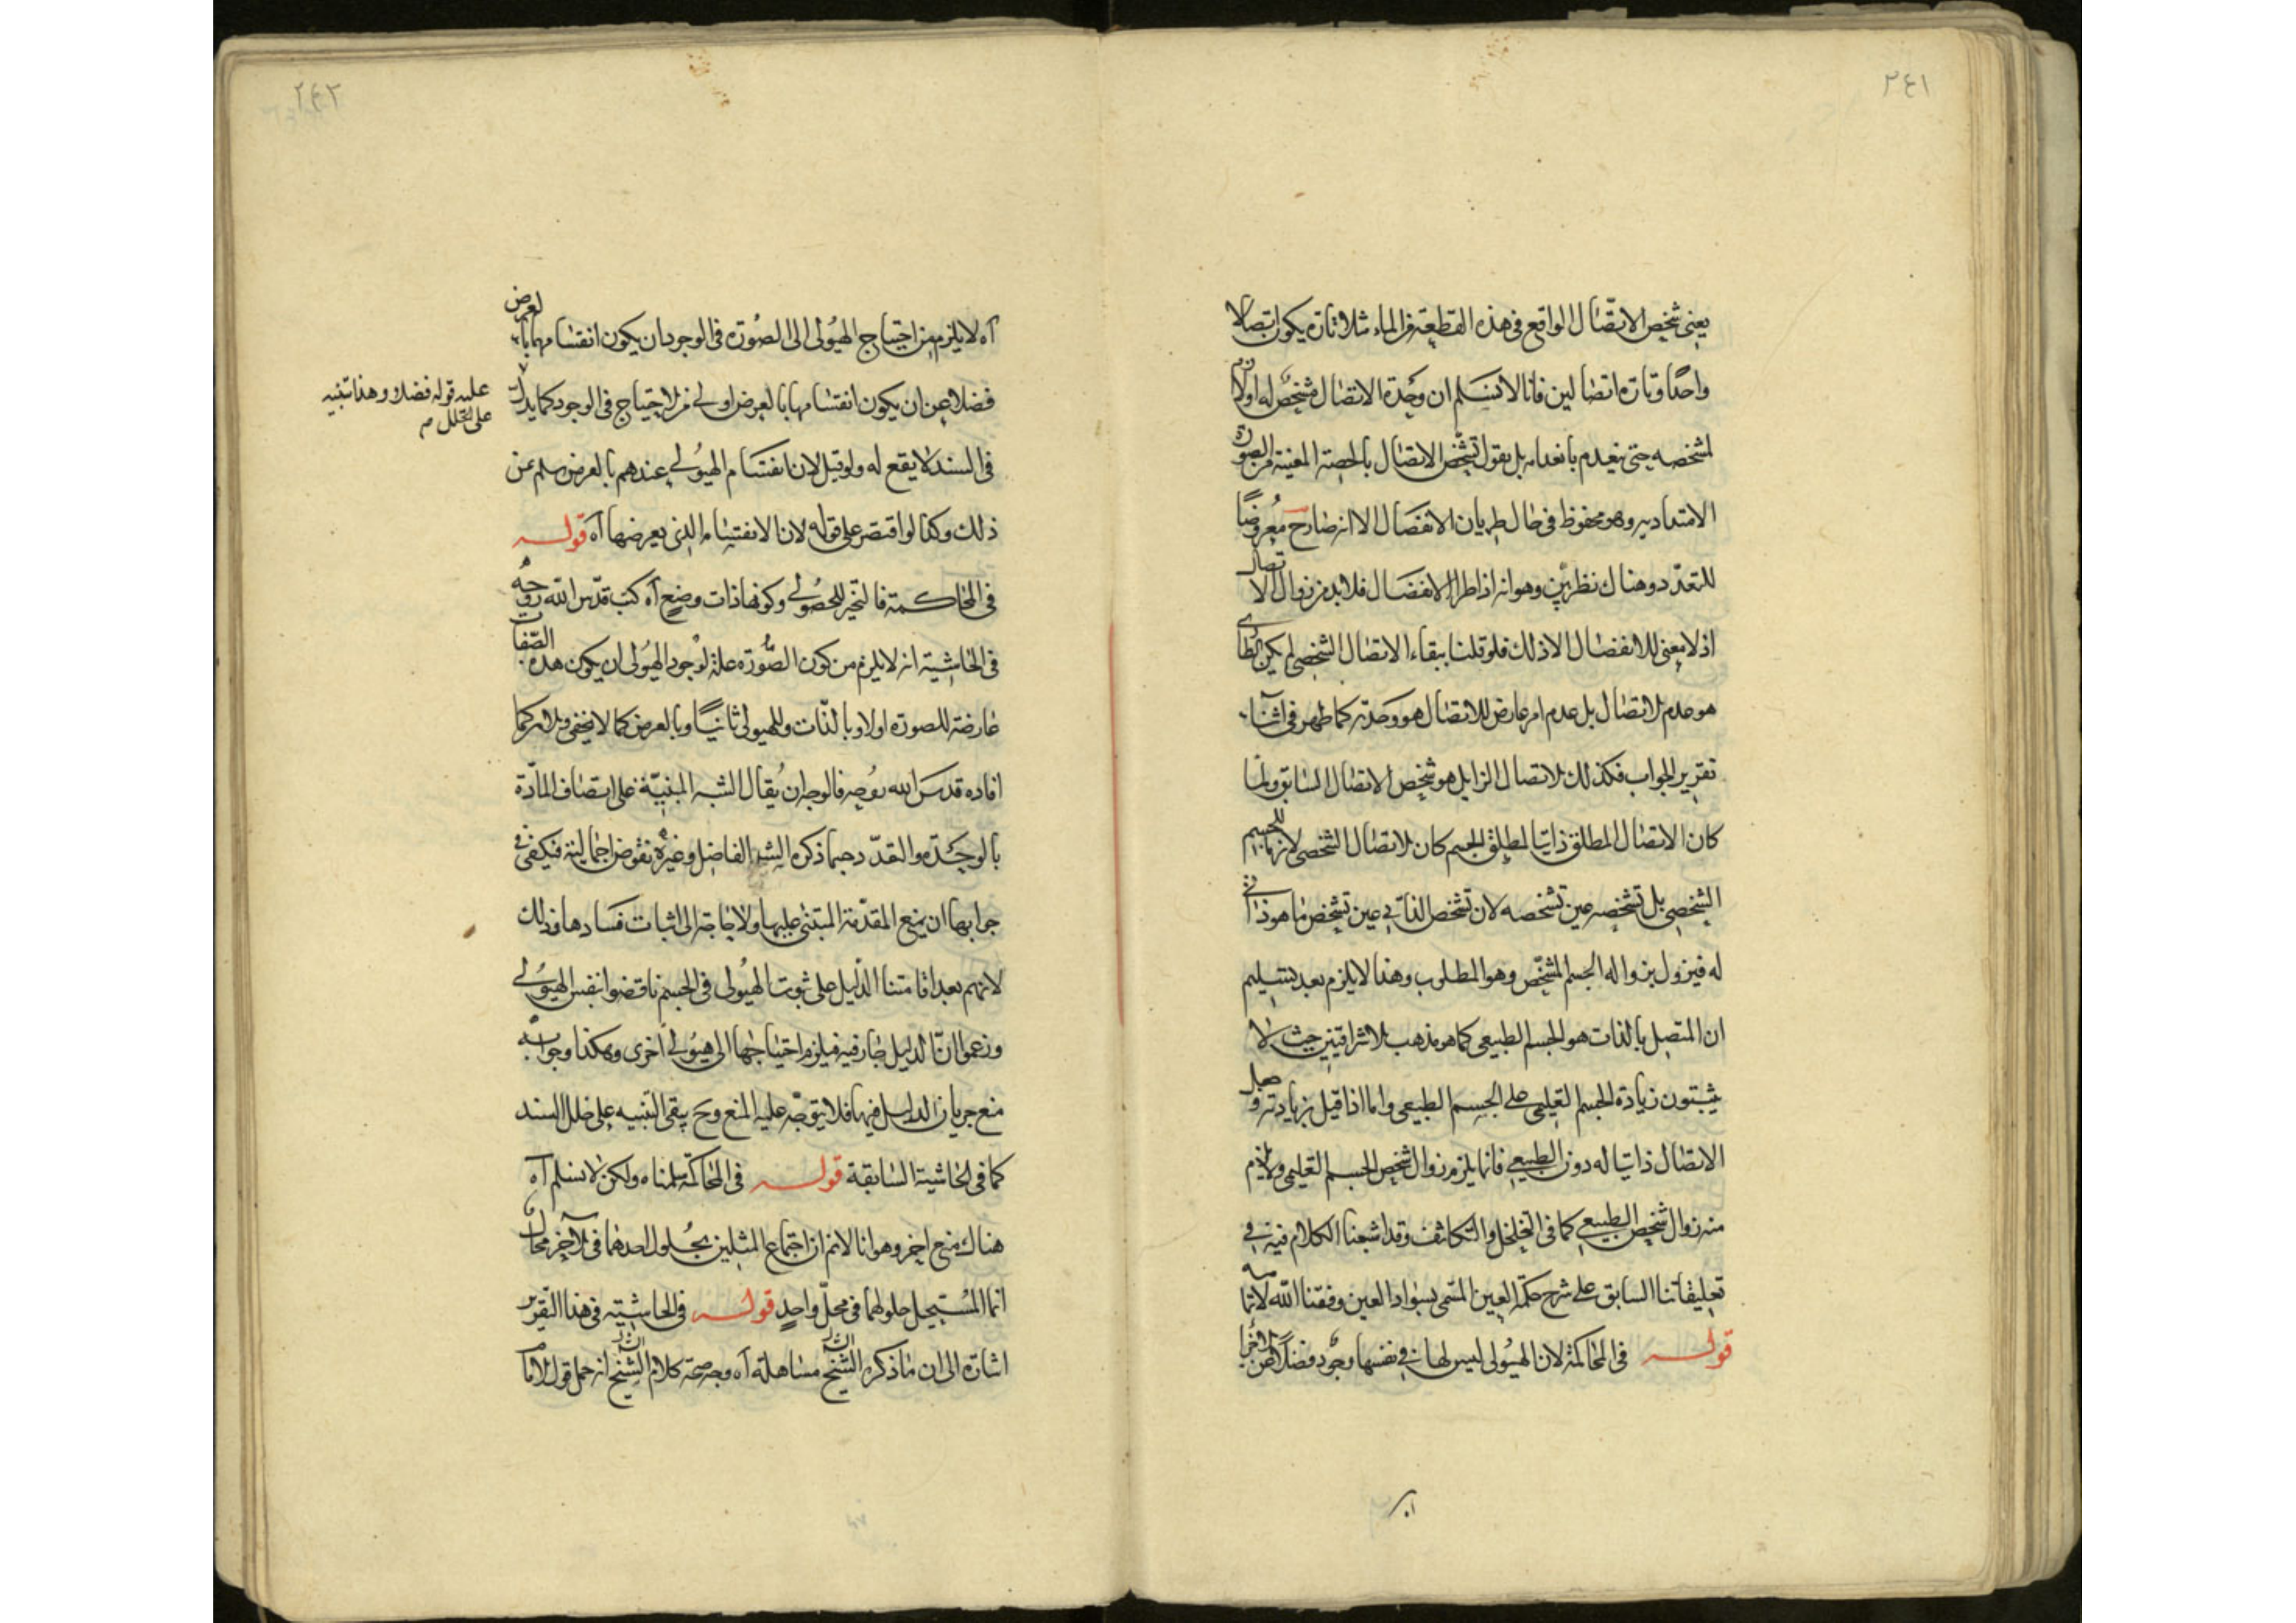 ٢٤١
يعنى شخص الاتصال الواقع فى هذه القطعة من الماء مثلا تارة يكون اتصالا
واحدًا وتارة اتصالين فانا لا نسلم ان وحدة الاتصال مشخص له او لازم
لشخصه حتى ينعدم بانعدامه بل نقول تشخص الاتصال بالحصة المعينة من الصورة
الامتدادية وهو محفوظ فى حال طريان الانفصال الا انه صار ح معروضًا
للتعدد وهناك نظر بين وهو انه اذا طرا الانفصال فلا بد من زوال الاتصال
اذ لا معنى للانفصال الا ذلك فلو قلنا ببقاء الاتصال الشخصى لم يكن الطارى
هو عدم الاتصال بل عدم امر عارض للاتصال هو وحدته كما ظهر فى اثناء
تقرير الجواب فكذلك الاتصال الزايل هو شخص الاتصال السابق ولما
كان الاتصال المطلق ذاتيا لمطلق الجسم كان الاتصال الشخصى لازما للجسم
الشخصى بل تشخصه عين تشخصه لان تشخص الذاتى عين تشخص ما هو ذاتى
له فيزول بزواله الجسم المشخص وهو المطلوب وهذا لا يلزم بعد تسليم
ان المتصل بالذات هو الجسم الطبيعى كما هو مذهب الاشراقيين حيث لا
يثبتون زيادة الجسم التعليمى على الجسم الطبيعى واما اذا قيل بزيادته وجعل
الاتصال ذاتيا له دون الطبيعى فانما يلزم زوال شخص الجسم التعليمى ولا يلزم
منه زوال شخص الطبيعى كما فى التخلخل والتكاثف وقد اشبعنا الكلام فيه فى
تعليقاتنا السابق على شرح حكمة العين المسمى بسواد العين وفقنا الله لاتمامه
قوله فى المحاكمة لان الهيولى ليس لها فى نفسها وجود فضلا عن
٢٤٢
آه لا يلزم من احتياج الهيولى الى الصورة فى الوجود ان يكون انقسامها بالعرض
فضلا عن ان يكون انقسامها بالعرض اولى من الاحتياج فى الوجود كما يدل
عليه قوله فضلا وهذا تنبيه
على الخلل م
فى السند لا يقع له ولو قيل لان انقسام الهيولى عندهم بالعرض سلم عن
ذلك وكذا لو اقتصر على قوله لان الانقسام الذى يعرضها آه قوله
فى المحاكمة فالتحيز للحصولى وكونها ذات وضع آه كتب قدس الله روحه
فى الحاشية انه لا يلزم من كون الصورة علة لوجود الهيولى ان يكون هذه الصفات
عارضة للصورة اولا وبالذات وللهيولى ثانيًا وبالعرض كما لا يخفى
افاده قدس الله روحه فالوجه ان يقال الشبه المبنية على اتصاف المادة
بالوحدة والتعدد حسبما ذكره الشر الفاضل وغيره نقوض اجمالية فيكفى فى
جوابها ان يمنع المقدمة المبتنى عليها ولا حاجة الى اثبات فسادها وذلك
لانهم بعد اقامتنا الدليل على ثبوت الهيولى فى الجسم ناقضوا بنفس الهيولى
وزعموا ان الدليل جار فيه فيلزم احتياجها الى هيولى اخرى وهكذا وجوابه
منع جريان الدليل فيها فلا يتوجه عليه المنع وح يبقى التنبيه على خلل السند
كما فى الحاشية السابقة قوله فى المحاكمة سلمناه ولكن لا نسلم آه
هناك منع اخر وهو انا لانم ان اجتماع المثلين بحلول احدهما فى الآخر محال
انما المستحيل حلولهما فى محل واحدٍ قوله فى الحاشية فى هذا التقرير
اشارة الى ان ما ذكره الشيخ مساهلة آه وجه صحة كلام الشيخ انه حمل قول الامام